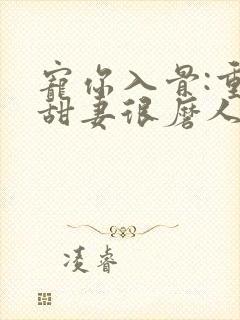 寵你入骨:重
甜妻很磨人
凌睿